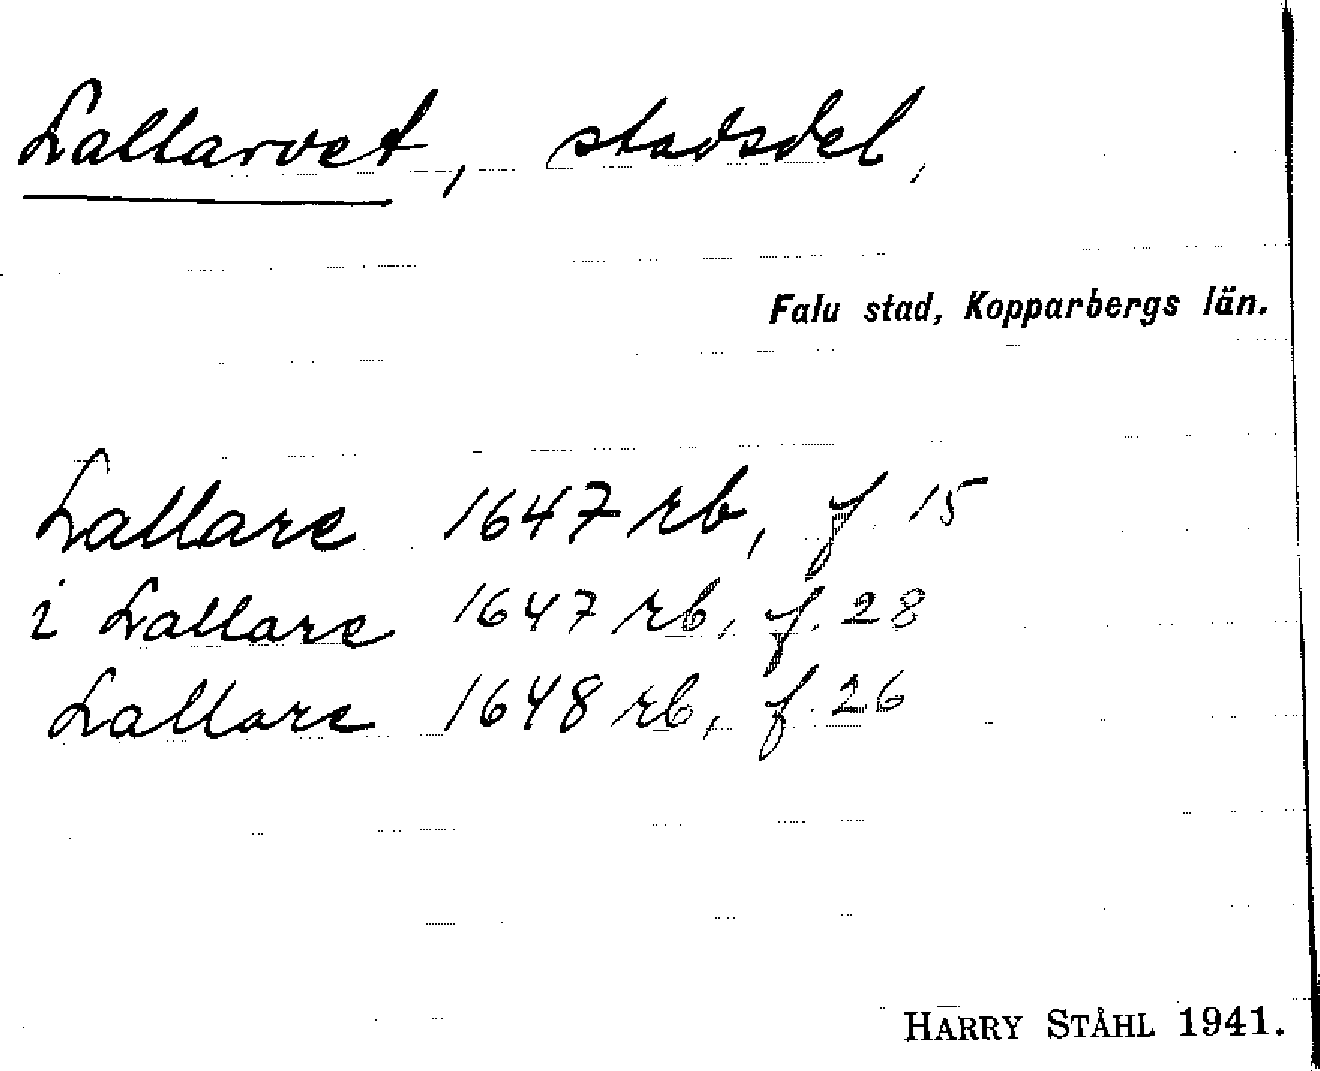 Lallarvet, stadsdel,
Falu stad, Kopparbergs län.
Lallare 1647 rb, f. 15
i Lallare 1647 rb, f. 28
Lallare 1648 rb, f. 26
HARRY STÅHL 1941.